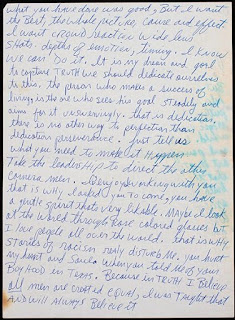 what you have done was good, But I want the
Best, the whole picture, Cause and effect
I want crowd reaction Wide lens
shots. depths of emotion, timing. I know
We can Do it. It is my dream and goal
to capture TRUTH we should dedicate ourselves
to this. the person who makes a success of
living, is the one who sees his goal steadily and
aims for it unswervingly. that is dedication.
there is no other way to perfection than
dedication, perseverance. Just tell us
what you need to make it Happen.
Take the leadership to direct the other
camera men. I enjoy working with you
that is why I asked you to come, you have
a gentle spirit thats very likable. MAYBe I look
at the world through Rose colored glasses but
I love people all over the world. that is why
stories of racism really disturb me. you hurt
my heart and Soul when you told me of your
Boy hood in Texas. Because in TRUTH I Believe
all men are created equal, I was taught that
and will always Believe it